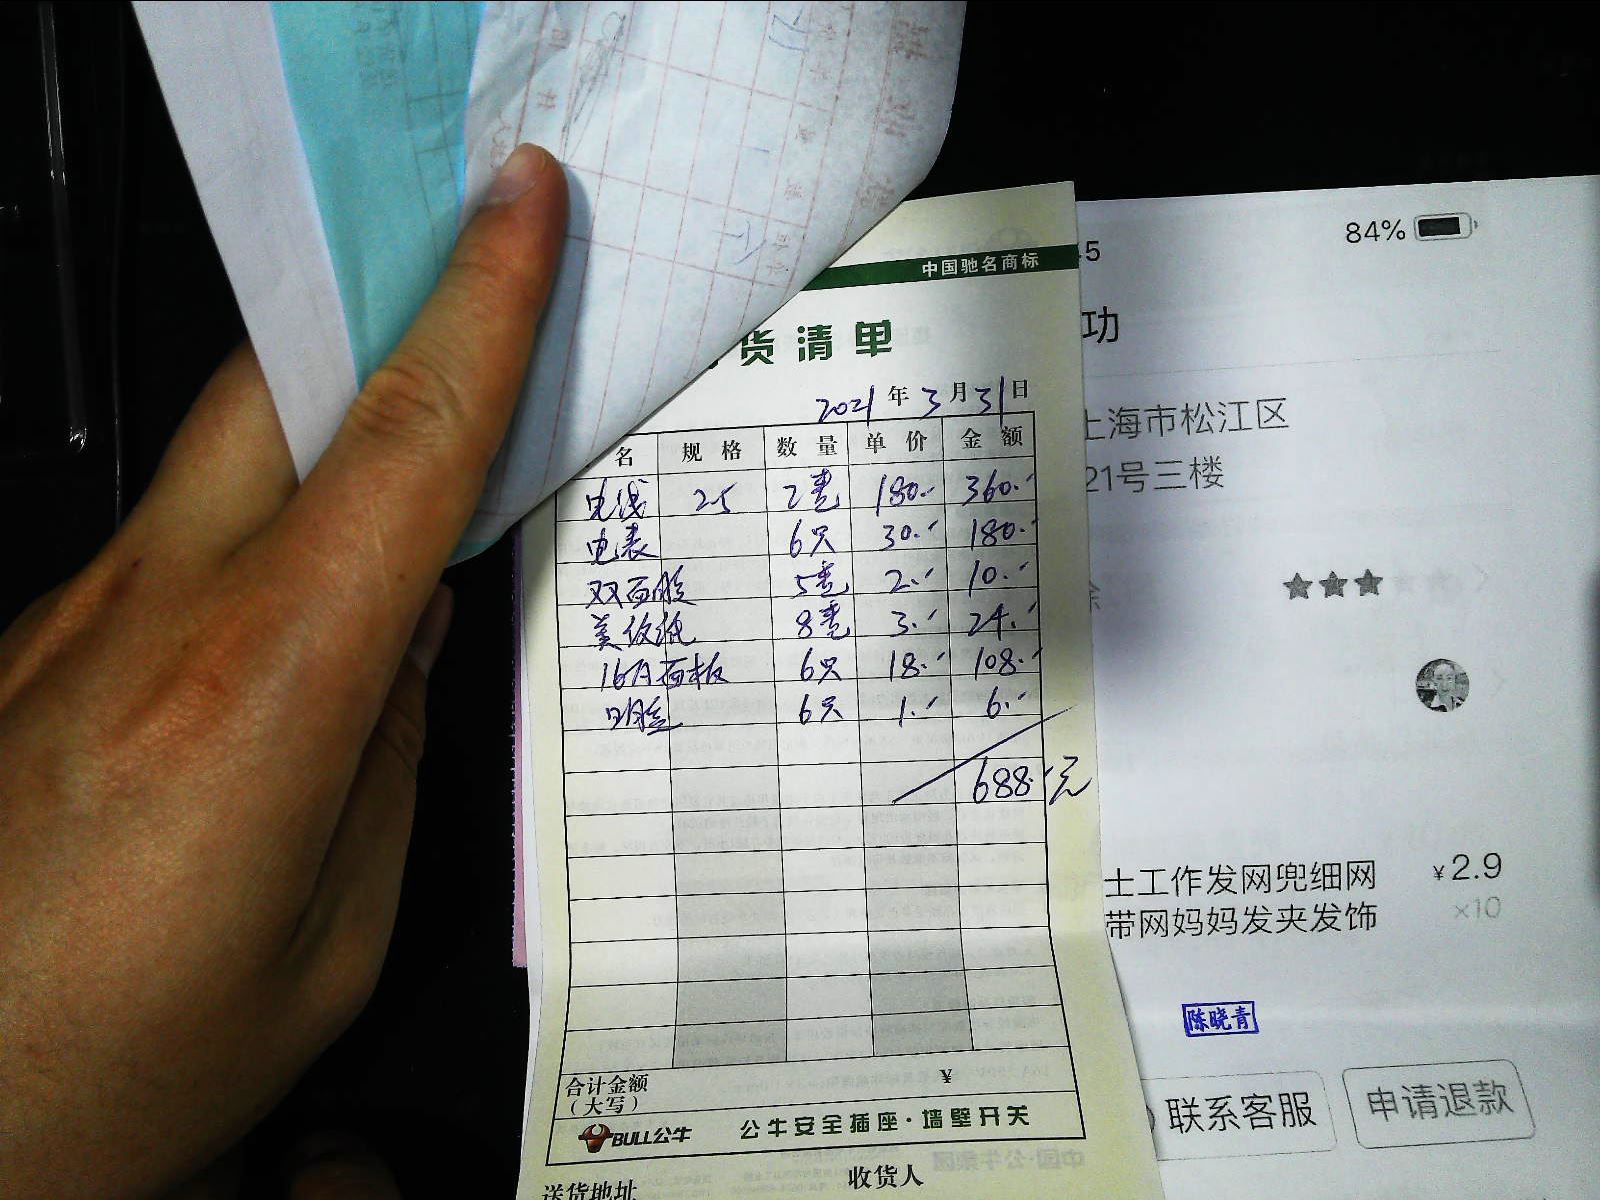 84%
45
中国驰名商标
功
货清单
2021年3月31日
上海市松江区
21号三楼
名 规格 数量 单价 金额
电线 2.5 2卷 180.- 360.-
电表 6只 30.- 180.-
双面胶 5卷 2.- 10.-
美纹纸 8卷 3.- 24.-
16A面板 6只 18.- 108.-
6只 1.- 6.-
688.-元
士工作发网兜细网 ¥2.9
带网妈妈发夹发饰 ×10
陈晓青
合计金额
(大写) ¥
BULL公牛 公牛安全插座·墙壁开关
联系客服 申请退款
送货地址 收货人